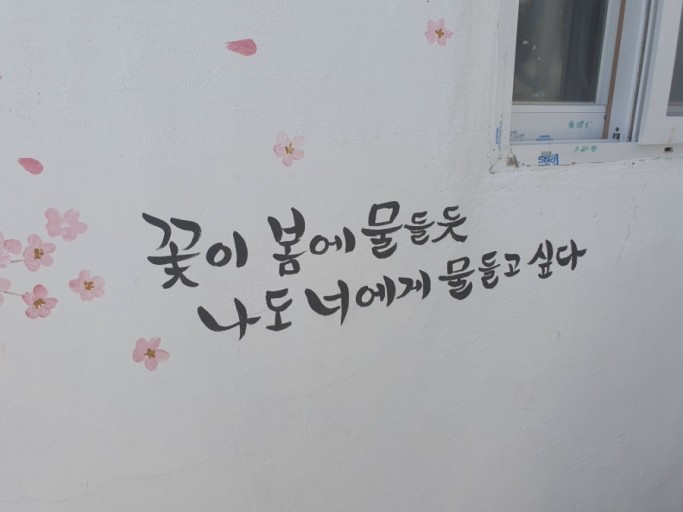 꽃이 봄에 물들듯
나도 너에게 물들고 싶다